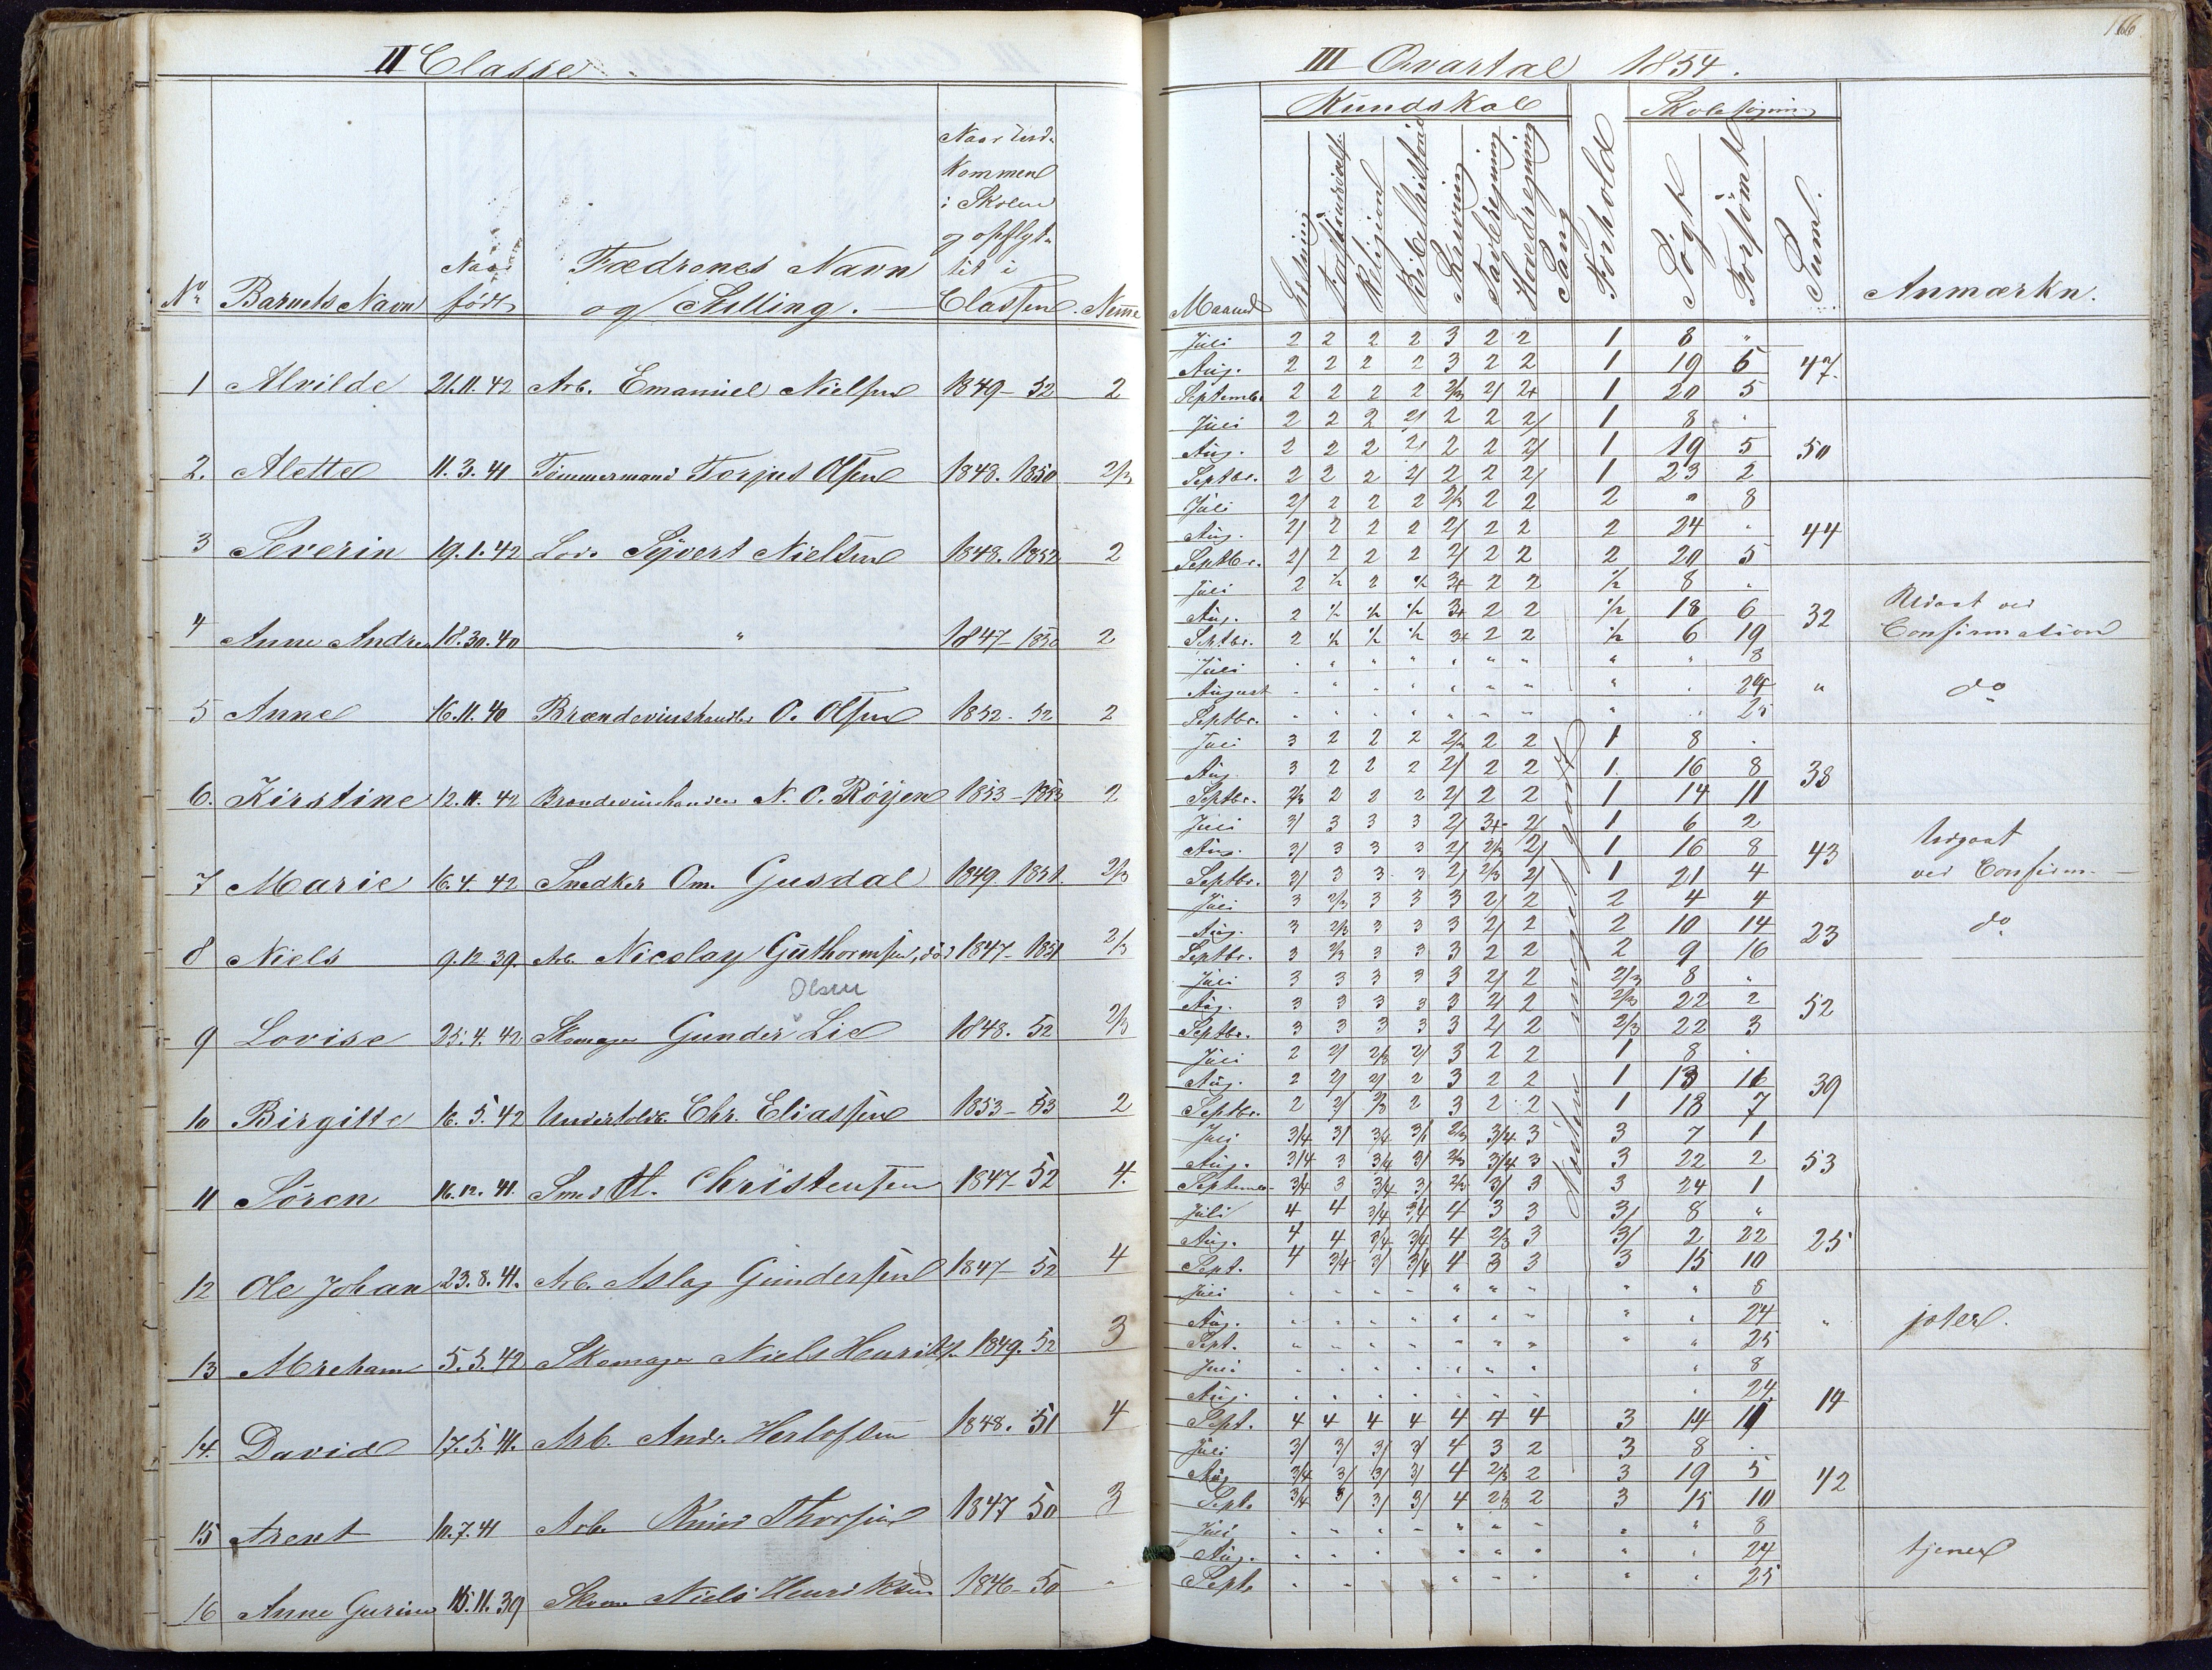 II Classe
N° Barnets Navn Naar født Fædrenes Navn og Stilling. Naar ind- kommen i Skolen og opflyt- tet i Classen.
1 Alvilde 21.11.42 Arb. Emanuel Nielsen 1849-52 2
2. Alette 11.3.41 Tømmermand Torjus Olsen 1848.1850 2/3
3 Severin 19.1.42 Lods Syvert Nielsen 1848.1852 2
4 Anne Andrea 18.30.40 " 1847-1850 2
5 Anne 16.11.40 Brændevinshandler O. Olsen 1852-52 2
6. Kirstine 12.11.42 Brændevinshandler N. O. Røyen 1853-1853 2
7 Marie 16.4.42 Snedker Om. Gusdal 1849.1851. 2/3
8 Niels 9.12.39. Arb. Nicolay Guthormsen, død 1847-1851 2/3
Olsen
9 Lovise 25.4.42 Skomager Gunder Lie 1848.52 2/3
10 Birgitte 16.5.42 Undertoldb. Chr. Eliassen 1853-53 2
11 Sören 16.12.41. Smed Christensen 1847-52 4.
12 Ole Johan 23.8.41. Arb. Aslag Gundersen 1847-52 4
13 Abreham 5.5.42 Skomager Niels Henriks. 1849.52 3
14. David 17.5.41. Arb. Andr. Herlofsen 1848.51 4
15 Arent 10.7.41 Arb. Knud Thorsen 1847 50 3
16 Anne Gurine 15.11.39 Skom. Niels Henriksen 1846-50 "
166
III Qvartal 1854.
Kundskab Skolesøgning
Maaned Læsning Religion Bibelhistorie Skrivning Tavleregning Hovedregning Sang Forhold Søgt Forsømt Suml. Anmærkn.
Juli 2 2 2 2 3 2 2 1 8 "
Aug. 2 2 2 2 3 2 2 1 19 5 47.
Septembr 2 2 2 2 2/3 2/ 2+ 1 20 5
Juli 2 2 2 2/ 2 2 2/ 1 8 "
Aug. 2 2 2 2/ 2 2 2/ 1 19 5 50
Septbr. 2 2 2 2/ 2 2 2/ 1 23 2
Juli 2/ 2 2 2 2/3 2 2 2 " 8
Aug. 2/ 2 2 2 2/ 2 2 2 24 " 44
Septbr. 2/ 2 2 2 2/ 2 2 2 20 5
Juli 2 1/2 2 1/2 3+ 2 2 1/2 8 "
Aug. 2 1/2 1/2 1/2 3+ 2 2 1/2 18 6 32 Udgaat ved
Septbr. 2 1/2 1/2 1/2 3+ 2 2 1/2 6 19 Confirmation
Juli " " " " " " " " " 8
August " " " " " " " " " 24 " do
Septbr. " " " " " " " " " 25
Juli 3 2 2 2 2/3 2 2 1 8 "
Aug. 3 2 2 2 2/ 2 2 1. 16 8 38
Septbr. 2/3 2 2 2 2/ 2 2 1 14 11
Juli 3/ 3 3 3 2/ 3+ 2/ 1 6 2
Aug. 3/ 3 3 3 2/ 2/3 2/ 1 16 8 43 Udgaat
Septbr. 3/ 3 3 3 2/ 2/3 2/ 1 21 4 ved Confirm.
Juli 3 2/3 3 3 3 2/ 2 2 4 4
Aug. 3 2/3 3 3 3 2/ 2 2 10 14 23 do
Septbr. 3 2/3 3 3 3 2 2 2 9 16
Juli 3 3 3 3 3 2/ 2 2/3 8 "
Aug. 3 3 3 3 3 2/ 2 2/3 22 2 52
Septbr. 3 3 3 3 3 2/ 2 2/3 22 3
Juli 2 2/ 2/3 2/ 3 2 2 1 8 "
Aug. 2 2/ 2/ 2 3 2 2 1 13 11 39
Septbr. 2 2/ 2/3 2 3 2 2 1 18 7
Juli 3/4 3/ 3/4 3/ 2/3 3/4 3 3 7 1
Aug. 3/4 3 3/4 3/ 2/3 3/4 3 3 22 2 53
Septembr. 3/4 3 3/4 3/ 2/3 3/ 3 3 24 1
Juli 4 4 3/4 3/4 4 3 3 3/ 8 "
Aug. 4 4 3/4 3/4 4 2/3 3 3/ 2 22 25
Sept. 4 3/4 3/ 3/4 4 3 3 3 15 10
Juli " " " " " " " " " 8
Aug. " " " " " " " " " 24 "
Sept. " " " " " " " " " 25
Juli " " " " " " " " 8
Aug. " " " " " " " " 24 14
Sept. 4 4 4 4 4 4 4 3 14 11
Juli 3/ 3/ 3/ 3/ 4 3 2 3 8 "
Aug. 3/4 3/ 3/ 3/ 4 2/3 2 3 19 5 42
Sept. 3/4 3/ 3/ 3/ 4 2/3 2 3 15 10
Juli " " " " " " " " " 8
Aug. " " " " " " " " 24 tjener
Sept. " " " " " " " 25
Næsten meget godt